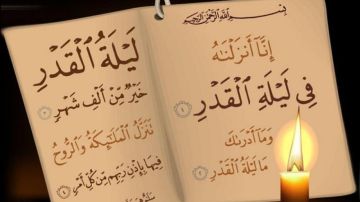 بِسْمِ اللَّهِ الرَّحْمَٰنِ الرَّحِيمِ
إِنَّآ أَنزَلْنَٰهُ
فِى لَيْلَةِ ٱلْقَدْرِ ١
وَمَآ أَدْرَىٰكَ
مَا لَيْلَةُ ٱلْقَدْرِ ٢
لَيْلَةُ ٱلْقَدْرِ
خَيْرٌ مِّنْ أَلْفِ شَهْرٍ ٣
تَنَزَّلُ ٱلْمَلَٰٓئِكَةُ وَٱلرُّوحُ
فِيهَا بِإِذْنِ رَبِّهِم مِّن كُلِّ أَمْرٍ ٤